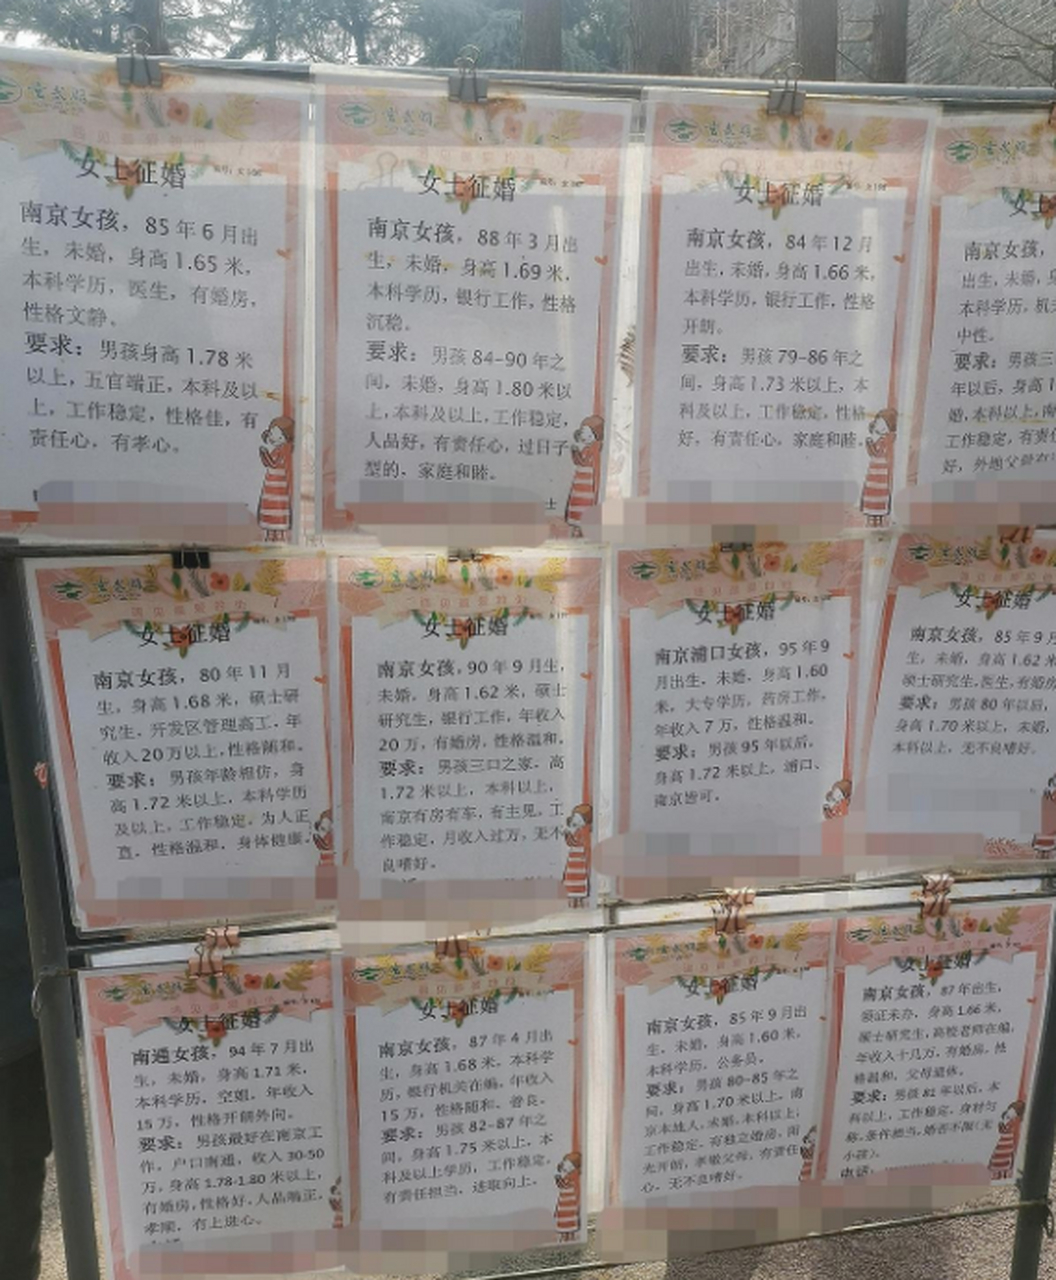 玄武湖
女士征婚
南京女孩，85年6月出
生，未婚，身高1.65米，
本科学历，医生，有婚房，
性格文静。
要求：男孩身高1.78米
以上，五官端正，本科及以
上，工作稳定，性格佳，有
责任心，有孝心。
玄武湖
女士征婚
南京女孩，88年3月出
生，未婚，身高1.69米，
本科学历，银行工作，性格
沉稳。
要求：男孩84-90年之
间，未婚，身高1.80米以
上，本科及以上，工作稳定，
人品好，有责任心，过日子
型的，家庭和睦。
士
玄武湖
女士征婚
南京女孩，84年12月
出生，未婚，身高1.66米，
本科学历，银行工作，性格
开朗。
要求：男孩79-86年之
间，身高1.73米以上，本
科及以上，工作稳定，性格
好，有责任心，家庭和睦。
玄武湖
女士
南京女孩，
出生，未婚，
本科学历，机
中性。
要求：男孩三
年以后，身高1
婚，本科以上，南
工作稳定，有责任
好，外地父母在
玄武湖
女士征婚
南京女孩，80年11月
生，身高1.68米，硕士研
究生，开发区管理高工，年
收入20万以上，性格随和。
要求：男孩年龄相仿，身
高1.72米以上，本科学历
及以上，工作稳定，为人正
直，性格温和，身体健康。
玄武湖
女士征婚
南京女孩，90年9月生，
未婚，身高1.62米，硕士
研究生，银行工作，年收入
20万，有婚房，性格温和。
要求：男孩三口之家，高
1.72米以上，本科以上，
南京有房有车，有主见，工
作稳定，月收入过万，无不
良嗜好。
玄武湖
女士征婚
南京浦口女孩，95年9
月出生，未婚，身高1.60
米，大专学历，药房工作，
年收入7万，性格温和。
要求：男孩95年以后，
身高1.72米以上，浦口、
南京皆可。
玄武湖
女士征婚
南京女孩，85年9月
生，未婚，身高1.62米
硕士研究生，医生，有婚房
要求：男孩80年以后，
身高1.70米以上，未婚，
本科以上，无不良嗜好。
玄武湖
女士征婚
南通女孩，94年7月出
生，未婚，身高1.71米，
本科学历，空姐，年收入
15万，性格开朗外向。
要求：男孩最好在南京工
作，户口南通，收入30-50
万，身高1.78-1.80米以上，
有婚房，性格好，人品端正，
孝顺，有上进心。
玄武湖
女士征婚
南京女孩，87年4月出
生，身高1.68米，本科学
历，银行机关在编，年收入
15万，性格随和、善良。
要求：男孩82-87年之
间，身高1.75米以上，本
科及以上学历，工作稳定，
有责任担当，进取向上。
玄武湖
女士征婚
南京女孩，85年9月出
生，未婚，身高1.60米，
本科学历，公务员。
要求：男孩80-85年之
间，身高1.70米以上，南
京本地人，未婚，本科以上，
工作稳定，有独立婚房，阳
光开朗，孝敬父母，有责任
心，无不良嗜好。
玄武湖
女士征婚
南京女孩，87年出生，
领证未办，身高1.66米，
硕士研究生，高校老师在编，
年收入十几万，有婚房，性
格温和，父母退休。
要求：男孩82年以后，本
科以上，工作稳定，身材匀
称，条件相当，婚否不限（无
小孩）。
电话：